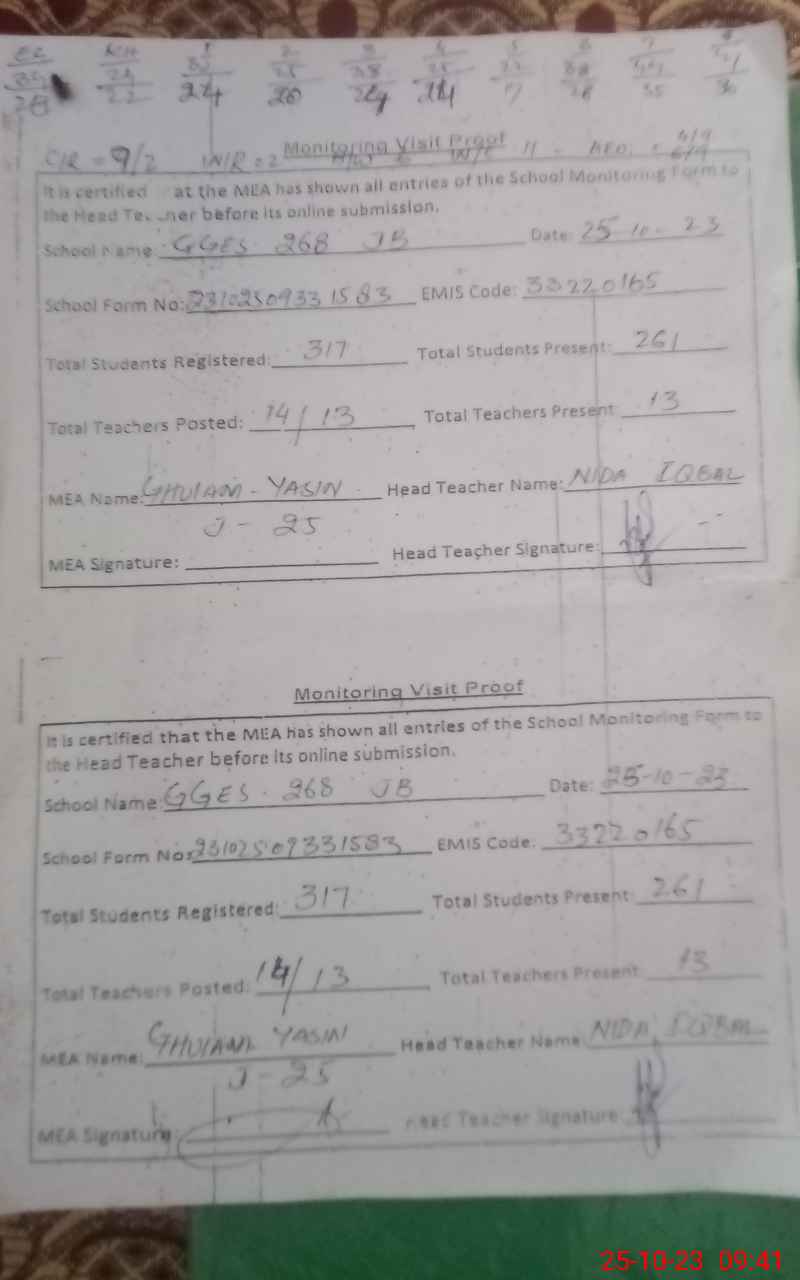 CIR = 9/2
Monitoring Visit Proof
It is certified at the MEA has shown all entries of the School Monitoring Form to
the Head before its online submission.
School Name: GGES 268 JB Date: 25-10-23
School Form No: 23102509331583 EMIS Code: 33220165
Total Students Registered: 317 Total Students Present: 261
Total Teachers Posted: 14/13 Total Teachers Present: 13
MEA Name: GHULAM-YASIN Head Teacher Name: NIDA IQBAL
J-25
MEA Signature: Head Teacher Signature:
Monitoring Visit Proof
It is certified that the MEA has shown all entries of the School Monitoring Form to
the Head Teacher before its online submission.
School Name: GGES 268 JB Date: 25-10-23
School Form No: 23102509331583 EMIS Code: 33220165
Total Students Registered: 317 Total Students Present: 261
Total Teachers Posted: 14/13 Total Teachers Present: 13
MEA Name: GHULAM YASIN Head Teacher Name: NIDA IQBAL
J-25
MEA Signature: Head Teacher Signature:
25-10-23 09:41